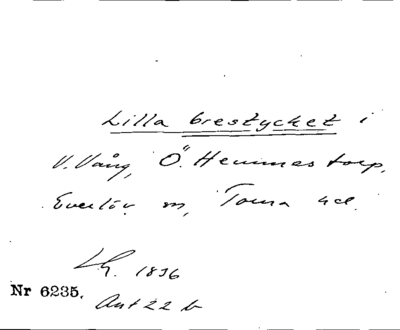 Lilla brestycket i
V. Vång, Ö. Hemmestorp,
Everlöv sn, Torna hd.
Lh. 1836
Nr 6235.
Ant 22 b